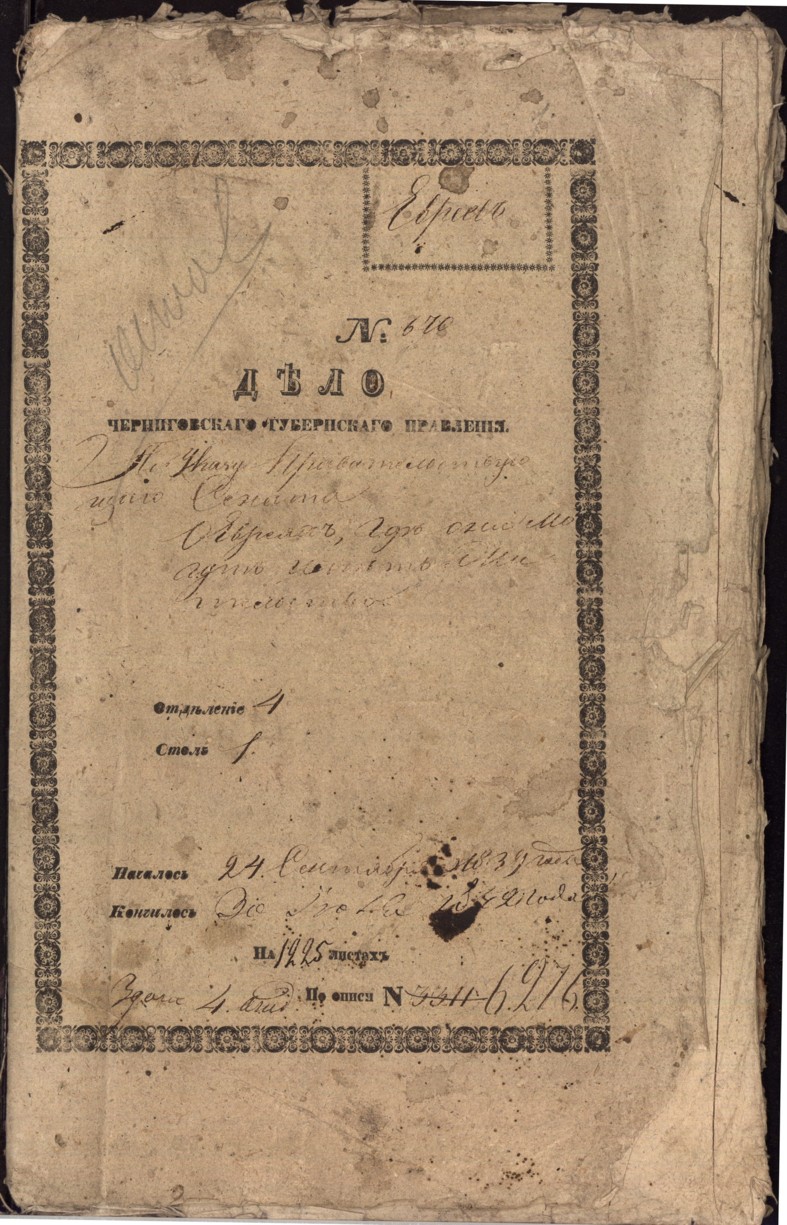 Евреевъ
N. 676
ДѢЛО
ЧЕРНИГОВСКАГО ГУБЕРНСКАГО ПРАВЛЕНІЯ.
По Указу Правительствую
щаго Сената
О Евреяхъ, гдѣ они мо
гутъ имѣть Жи
тельство
Отдѣленіе 4
Столъ 1.
Началось 24. Сентября 1839 года
Кончилось 30 1842 года
На 1225 листахъ
4. По описи N 3311 6276